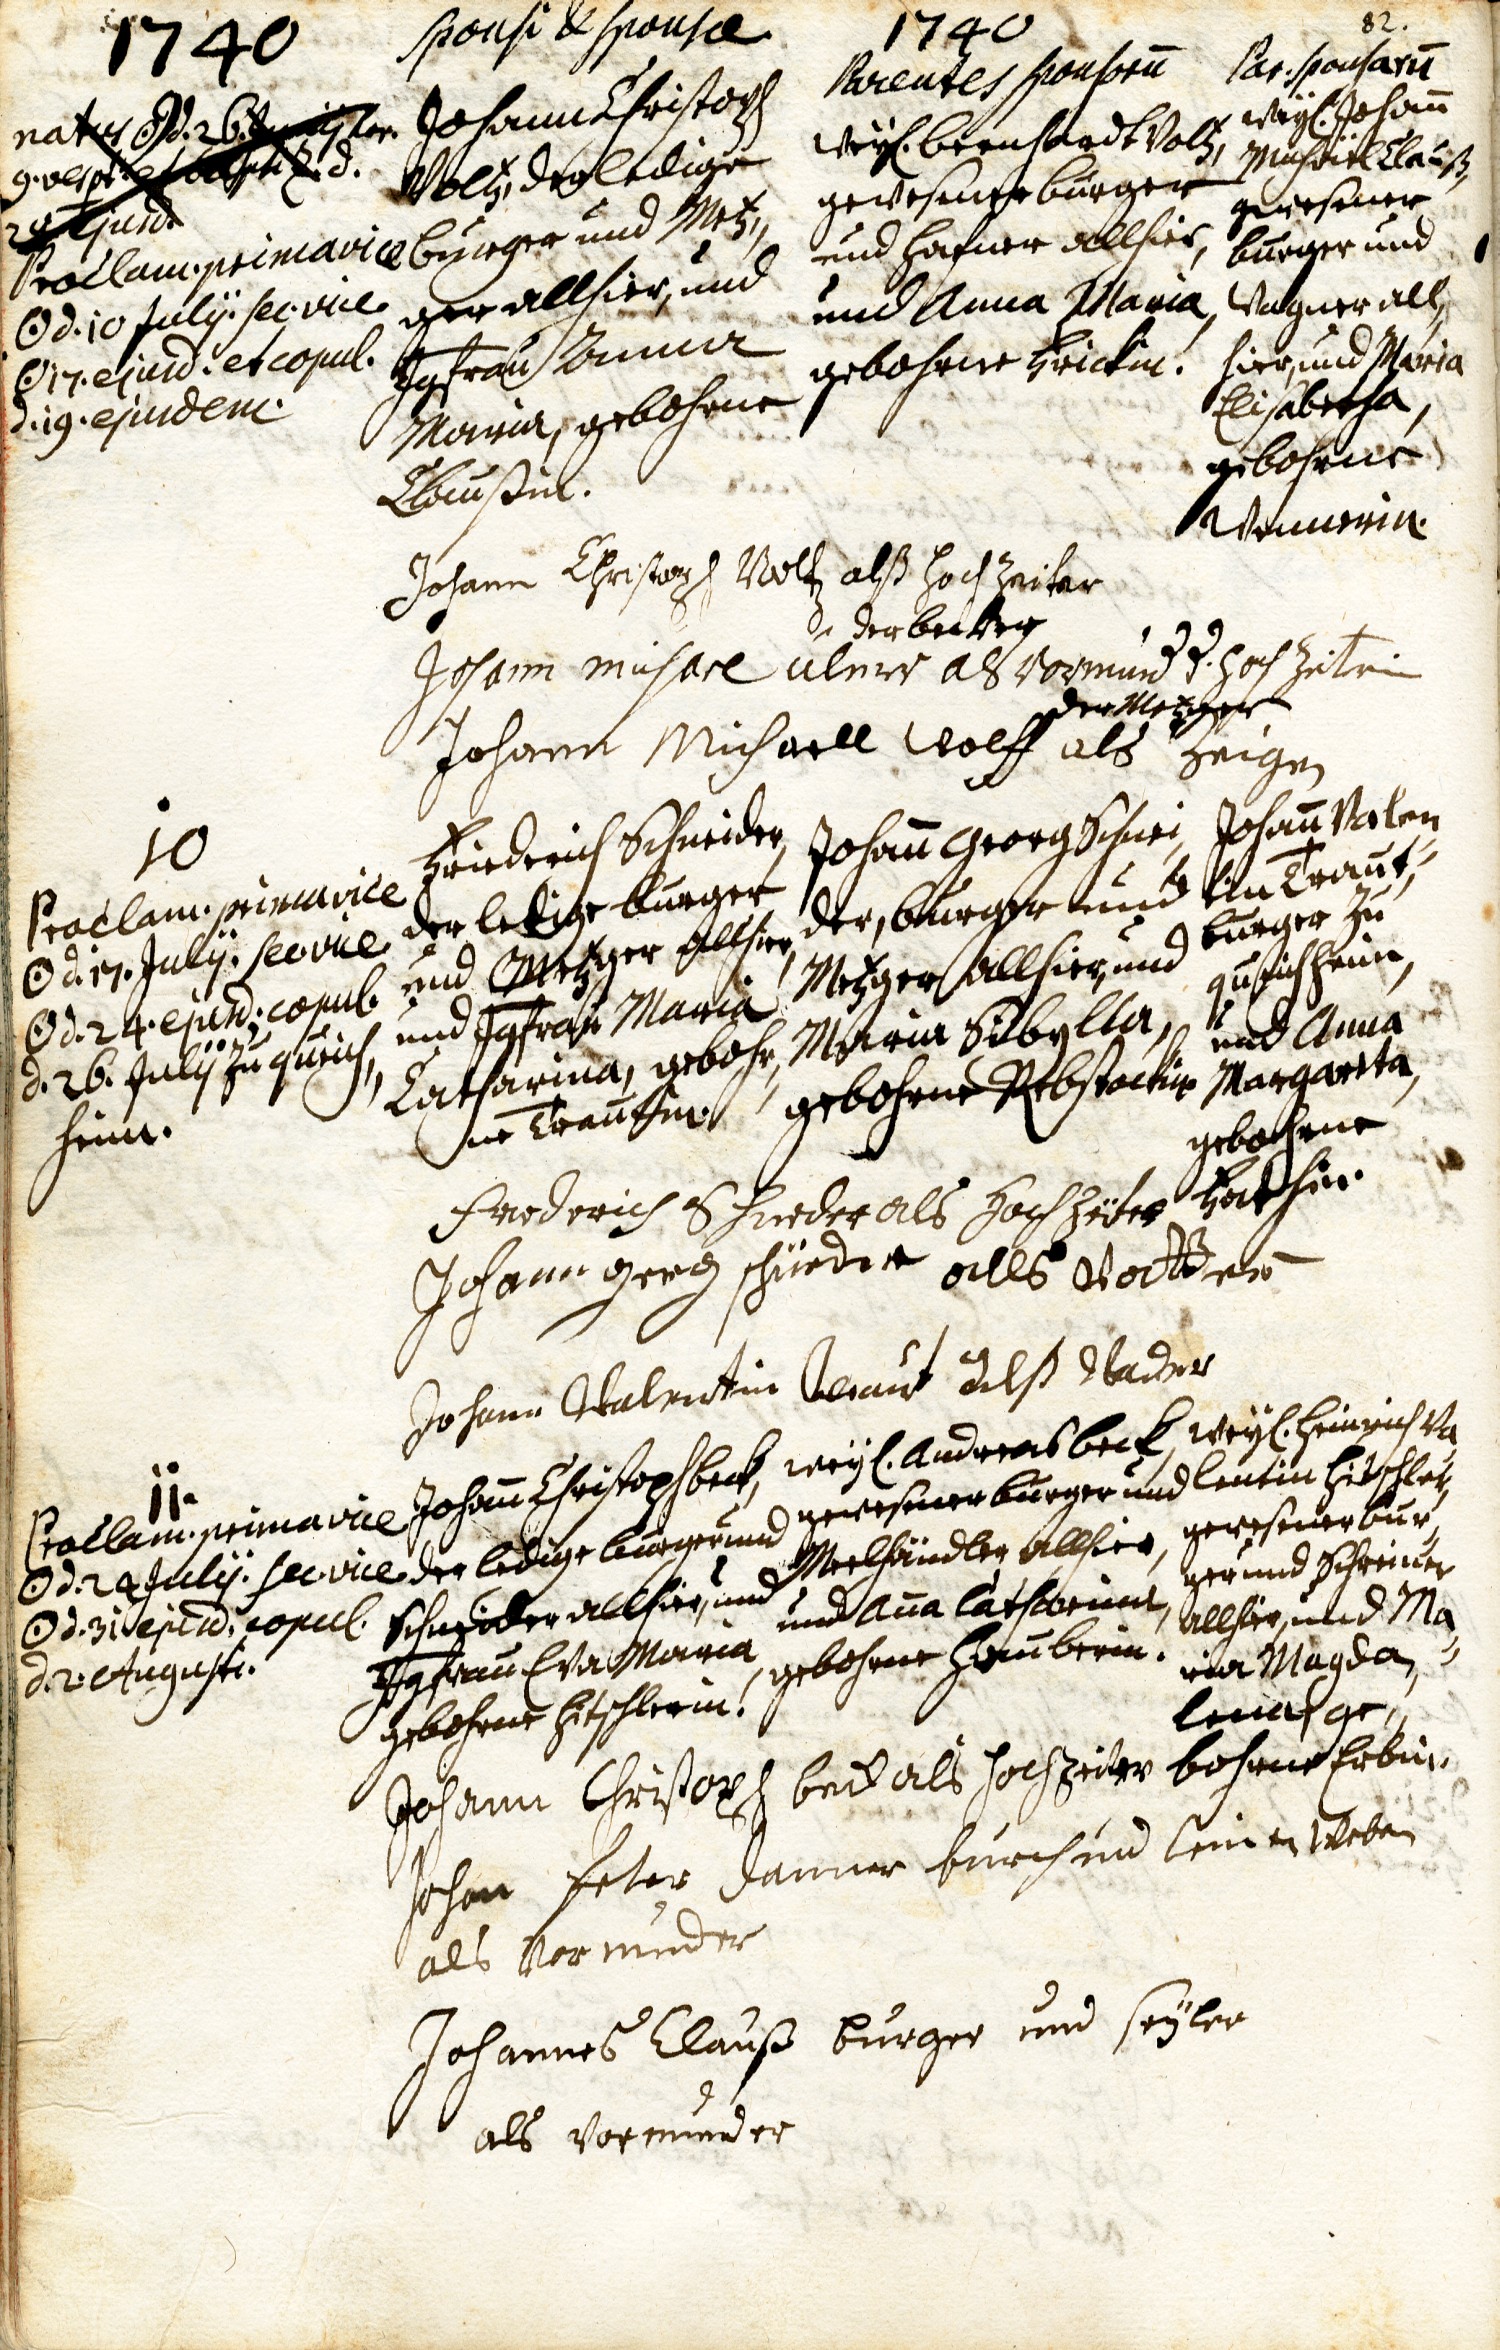 1740
Sponsi & Sponsæ
1740
82.
Parentes Sponsorū
Par. Sponsarū
natus ☉ d. 26.
9. vesp. et d.
29 ejusd.
Proclam. prima vice
☉ d. 10 Julij. sec. vice
☉ 17. ejusd. et copul.
d. 19. ejusdem.
Johann Christoph
Voltz, der ledige
burger und Metz,,
ger allhier, und
Jgfrau Anna
Maria, gebohrne
Claußin.
weyl. bernhardt Voltz,
gewesener burger
und hafner allhier,
und Anna Maria,
gebohrne Frickin.
weyl. Johan̄
Michael Clauß,
gewesener
burger und
Wagner all,,
hier, und Maria
Elisabetha,
gebohrne
Wennerin.
Johann Christoph Voltz alß hochzeiter
der becker
Johann michael ulmer als vormund d. hochzeiterin
der Metzger
Johann Michaell Wolff als Zeigen
10
Proclam. prima vice
☉ d. 17. Julij. sec. vice
☉ d. 24. ejusd. copul.
d. 26. Julij zu queich,,
heim.
Friederich Schneider,
der ledige burger
und Metzger allhier,
und Jgfrau Maria
Catharina, gebohr,,
ne Trautin.
Johan̄ Georg Schnei,,
der, burger und
Metzger allhier, und
Maria Sibylla,
gebohrne Rebstockin
Johan̄ Valen,,
tin Traut,
burger zu
queichheim,
und Anna
Margareta,
gebohrne
Hathin.
Frederich Schneder als Hochzeiter
Johann gerg schneder alls Vatter
Johann Valentin Traut alß Vader
11.
Proclam. prima vice
☉ d. 24 Julij. sec. vice
☉ d. 31. ejusd. copul.
d. 2. Augusti.
Johan̄ Christoph beck,
der ledige burger und
Schneider allhier, und
Jgfrau Eva Maria
gebohrne Hitschlerin.
weyl. Andreas beck,
gewesener burger und
Meelhändler allhier,
und An̄a Catharina,
gebohrne Hauberin.
weyl. Heinrich Va,,
lentin Hitschler,
gewesener bur,,
ger und Schreiner
allhier, und Ma,,
ria Magda,,
lena, ge,,
bohrne Erbin.
Johann Christoph beck als hochzeiter
Johan Peter Danner burch und leinen Weber
als Vormunder
Johannes Clauß burger und seyler
als vormunder